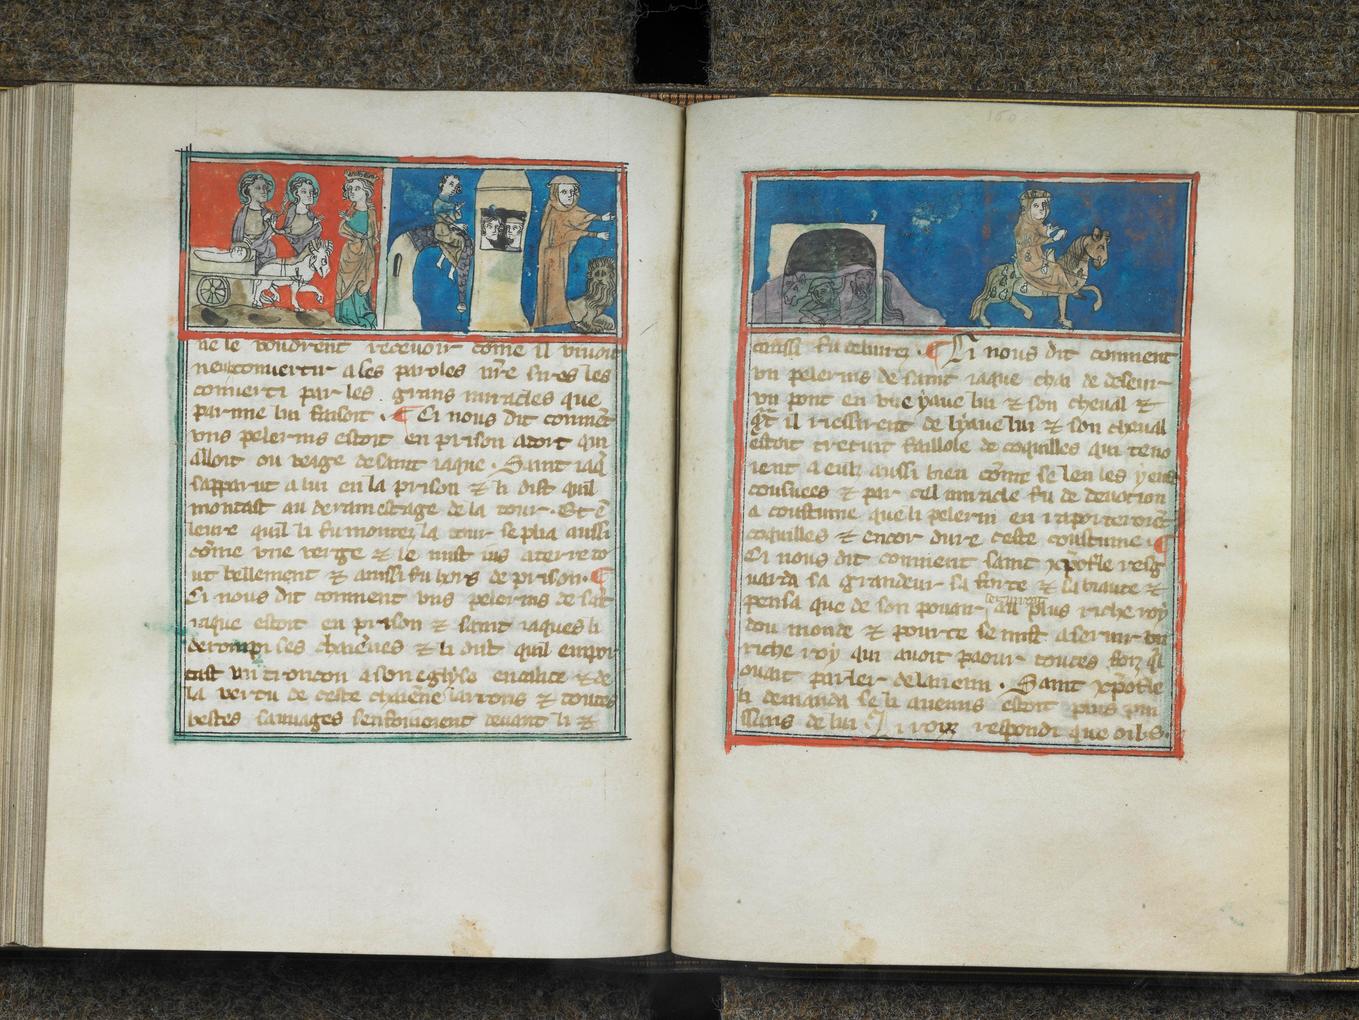 ne le voudrent recevoir cõme il vivoit
ne convertir a les paroles
converti par les grans miracles que
par me lui faisoit . ¶ Ci nous dit cõmẽt
vns pelerins estoit en prison a tort qui
alloit ou veage de saint iaque . Saint iaq̃
sapparut a lui en la prison ⁊ li dist quil
montast au derain estage de la tour . Et ẽ
leure quil li fu montez la tour se plia aussi
cõme vne verge ⁊ le mist ius a terre to
ut bellement ⁊ ainssi fu hors de prison . ¶
Ci nous dit comment vns pelerins de sait
iaque estoit en prison ⁊ saint iaques li
derompi ses chaiẽnes ⁊ li dist quil empor
tast un troncon a son eglyse en galice ⁊ de
la vertu de ceste chaiẽne larrons ⁊ toutes
bestes sauvages senfouioient devant li ⁊
160
ainssi fu ¶ Ci nous dit comment
vn pelerins de saint iaque chai de deseur
vn pont en vne yaue lui ⁊ son cheval ⁊
qãt il riessirent de lyaue lui ⁊ son cheval
estoit tretuit de coquilles qui teno
ient a eulz aussi bien cõme se len les y eust
cousues ⁊ par cel miracle fu de devotion
a coustume que li pelerin en raporteroiẽt
coquilles ⁊ encor dure ceste coustume . ¶
Ci nous dit comment saint xp̃ofle resg
uarda sa grandeur sa force ⁊ sa biaute ⁊
pensa que de son pouair au plus riche roy
dou monde ⁊ pour ce se mist a servir un
riche roy qui avoit paour toutes foiz q̃l
ouait parler de lanemi . Saint xp̃ofle
li demanda se li anemis estoit plus pui
ssans de lui Li rois respondi que oil .